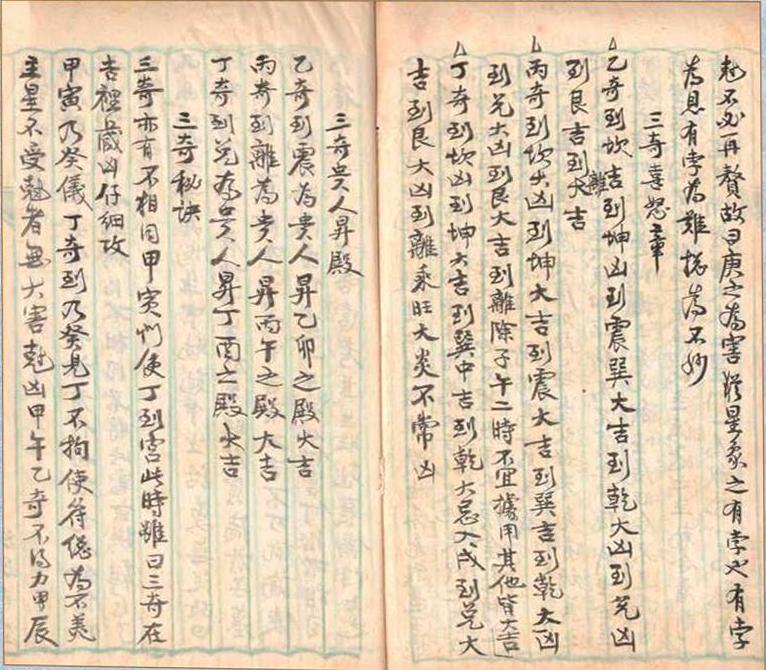 勉不必再贅故曰庚之為害猶星家之有孛也有孛
為恩有孛為難撓為不妙
三奇喜怒章
乙奇到坎吉到坤凶到震巽大吉到乾大凶到兌凶
到艮吉到離大吉
丙奇到坎大凶到坤大吉到震大吉到巽吉到乾大凶
到兌大凶到艮大吉到離除子午二時不宜擄用其他皆大吉
丁奇到坎凶到坤大吉到巽中吉到乾大忌入戌到兌大
吉到艮大凶到離乘旺大炎不常凶
三奇貴人昇殿
乙奇到震為貴人昇乙卯之殿大吉
丙奇到離為貴人昇丙午之殿大吉
丁奇到兌為貴人昇丁酉之殿大吉
三奇秘訣
三奇亦有不相同甲寅們使丁到宮此時雖曰三奇在
吉裡藏凶仔細攷
甲寅乃癸儀丁奇到乃癸見丁不拘使符總為不美
主星不受尅者無大害尅凶甲午乙奇不得力甲辰